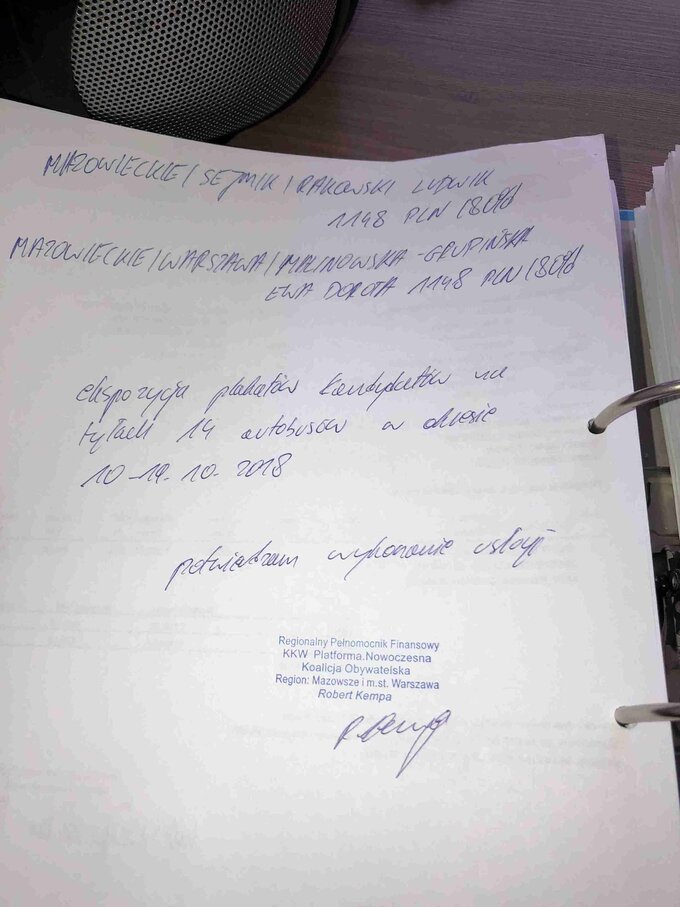 MAZOWIECKIE / SEJMIK / RAKOWSKI LUDWIK
1148 PLN (80%)
MAZOWIECKIE / WARSZAWA / MALINOWSKA-GRUPIŃSKA
EWA DOROTA 1148 PLN (80%)
ekspozycja plakatów kandydatów na
tyłach 14 autobusów w okresie
10-19.10.2018
potwierdzam wykonanie usługi
Regionalny Pełnomocnik Finansowy
KKW Platforma.Nowoczesna
Koalicja Obywatelska
Region: Mazowsze i m.st. Warszawa
Robert Kempa